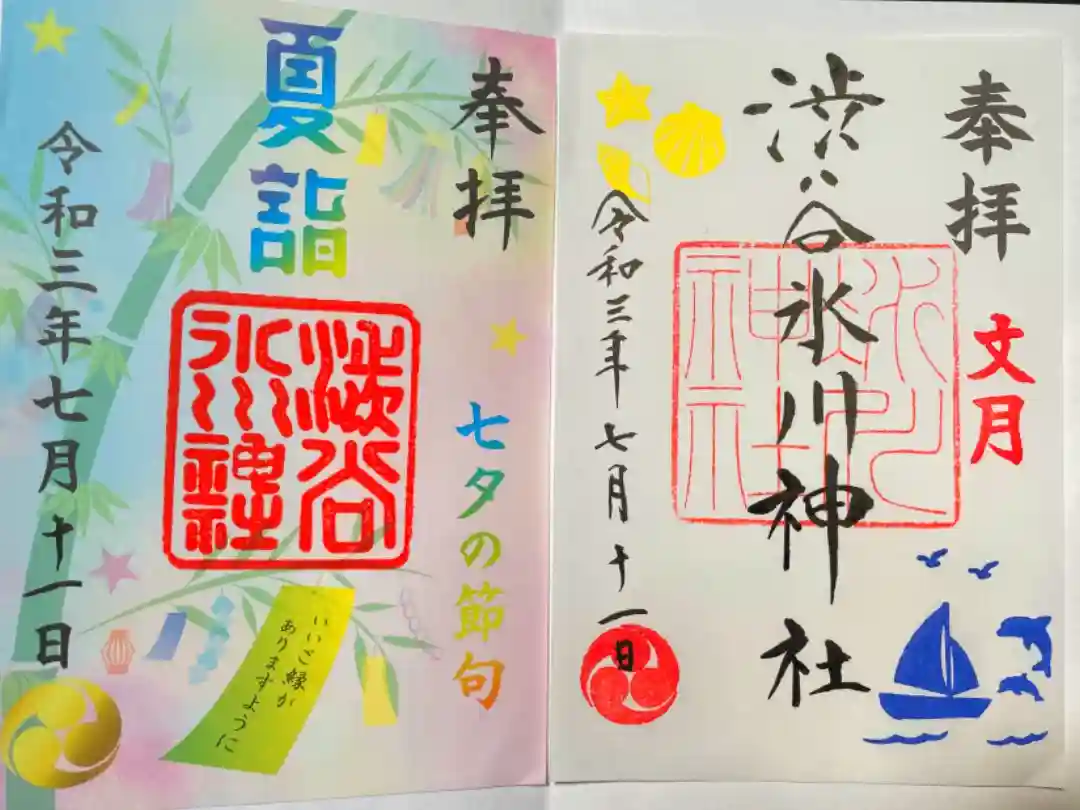 奉拝
夏詣
渋谷
氷川
神社
七夕の節句
いいご縁が
ありますように
令和三年七月十一日
奉拝
文月
渋谷氷川神社
令和三年七月十一日